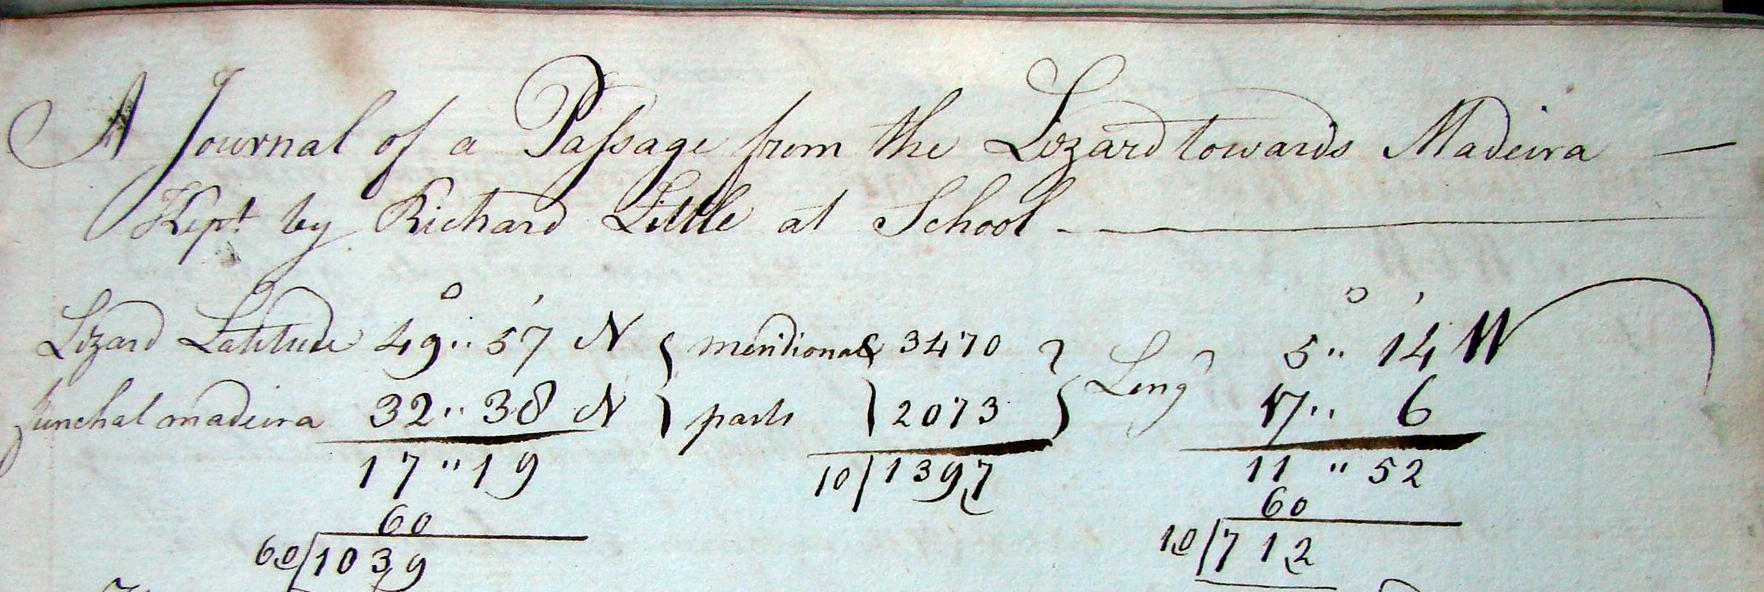 A Journal of a Passage from the Lizard towards Madeira —
Kept by Richard Little at School
° ' ° '
Lizard Latitude 49" 57 N { meridional 3470 } Long 5" 14 W
Funchal madeira 32" 38 N } parts } 2073 } 17" 6
17 " 19 10/1397 11 " 52
60 60
60/1039 10/712